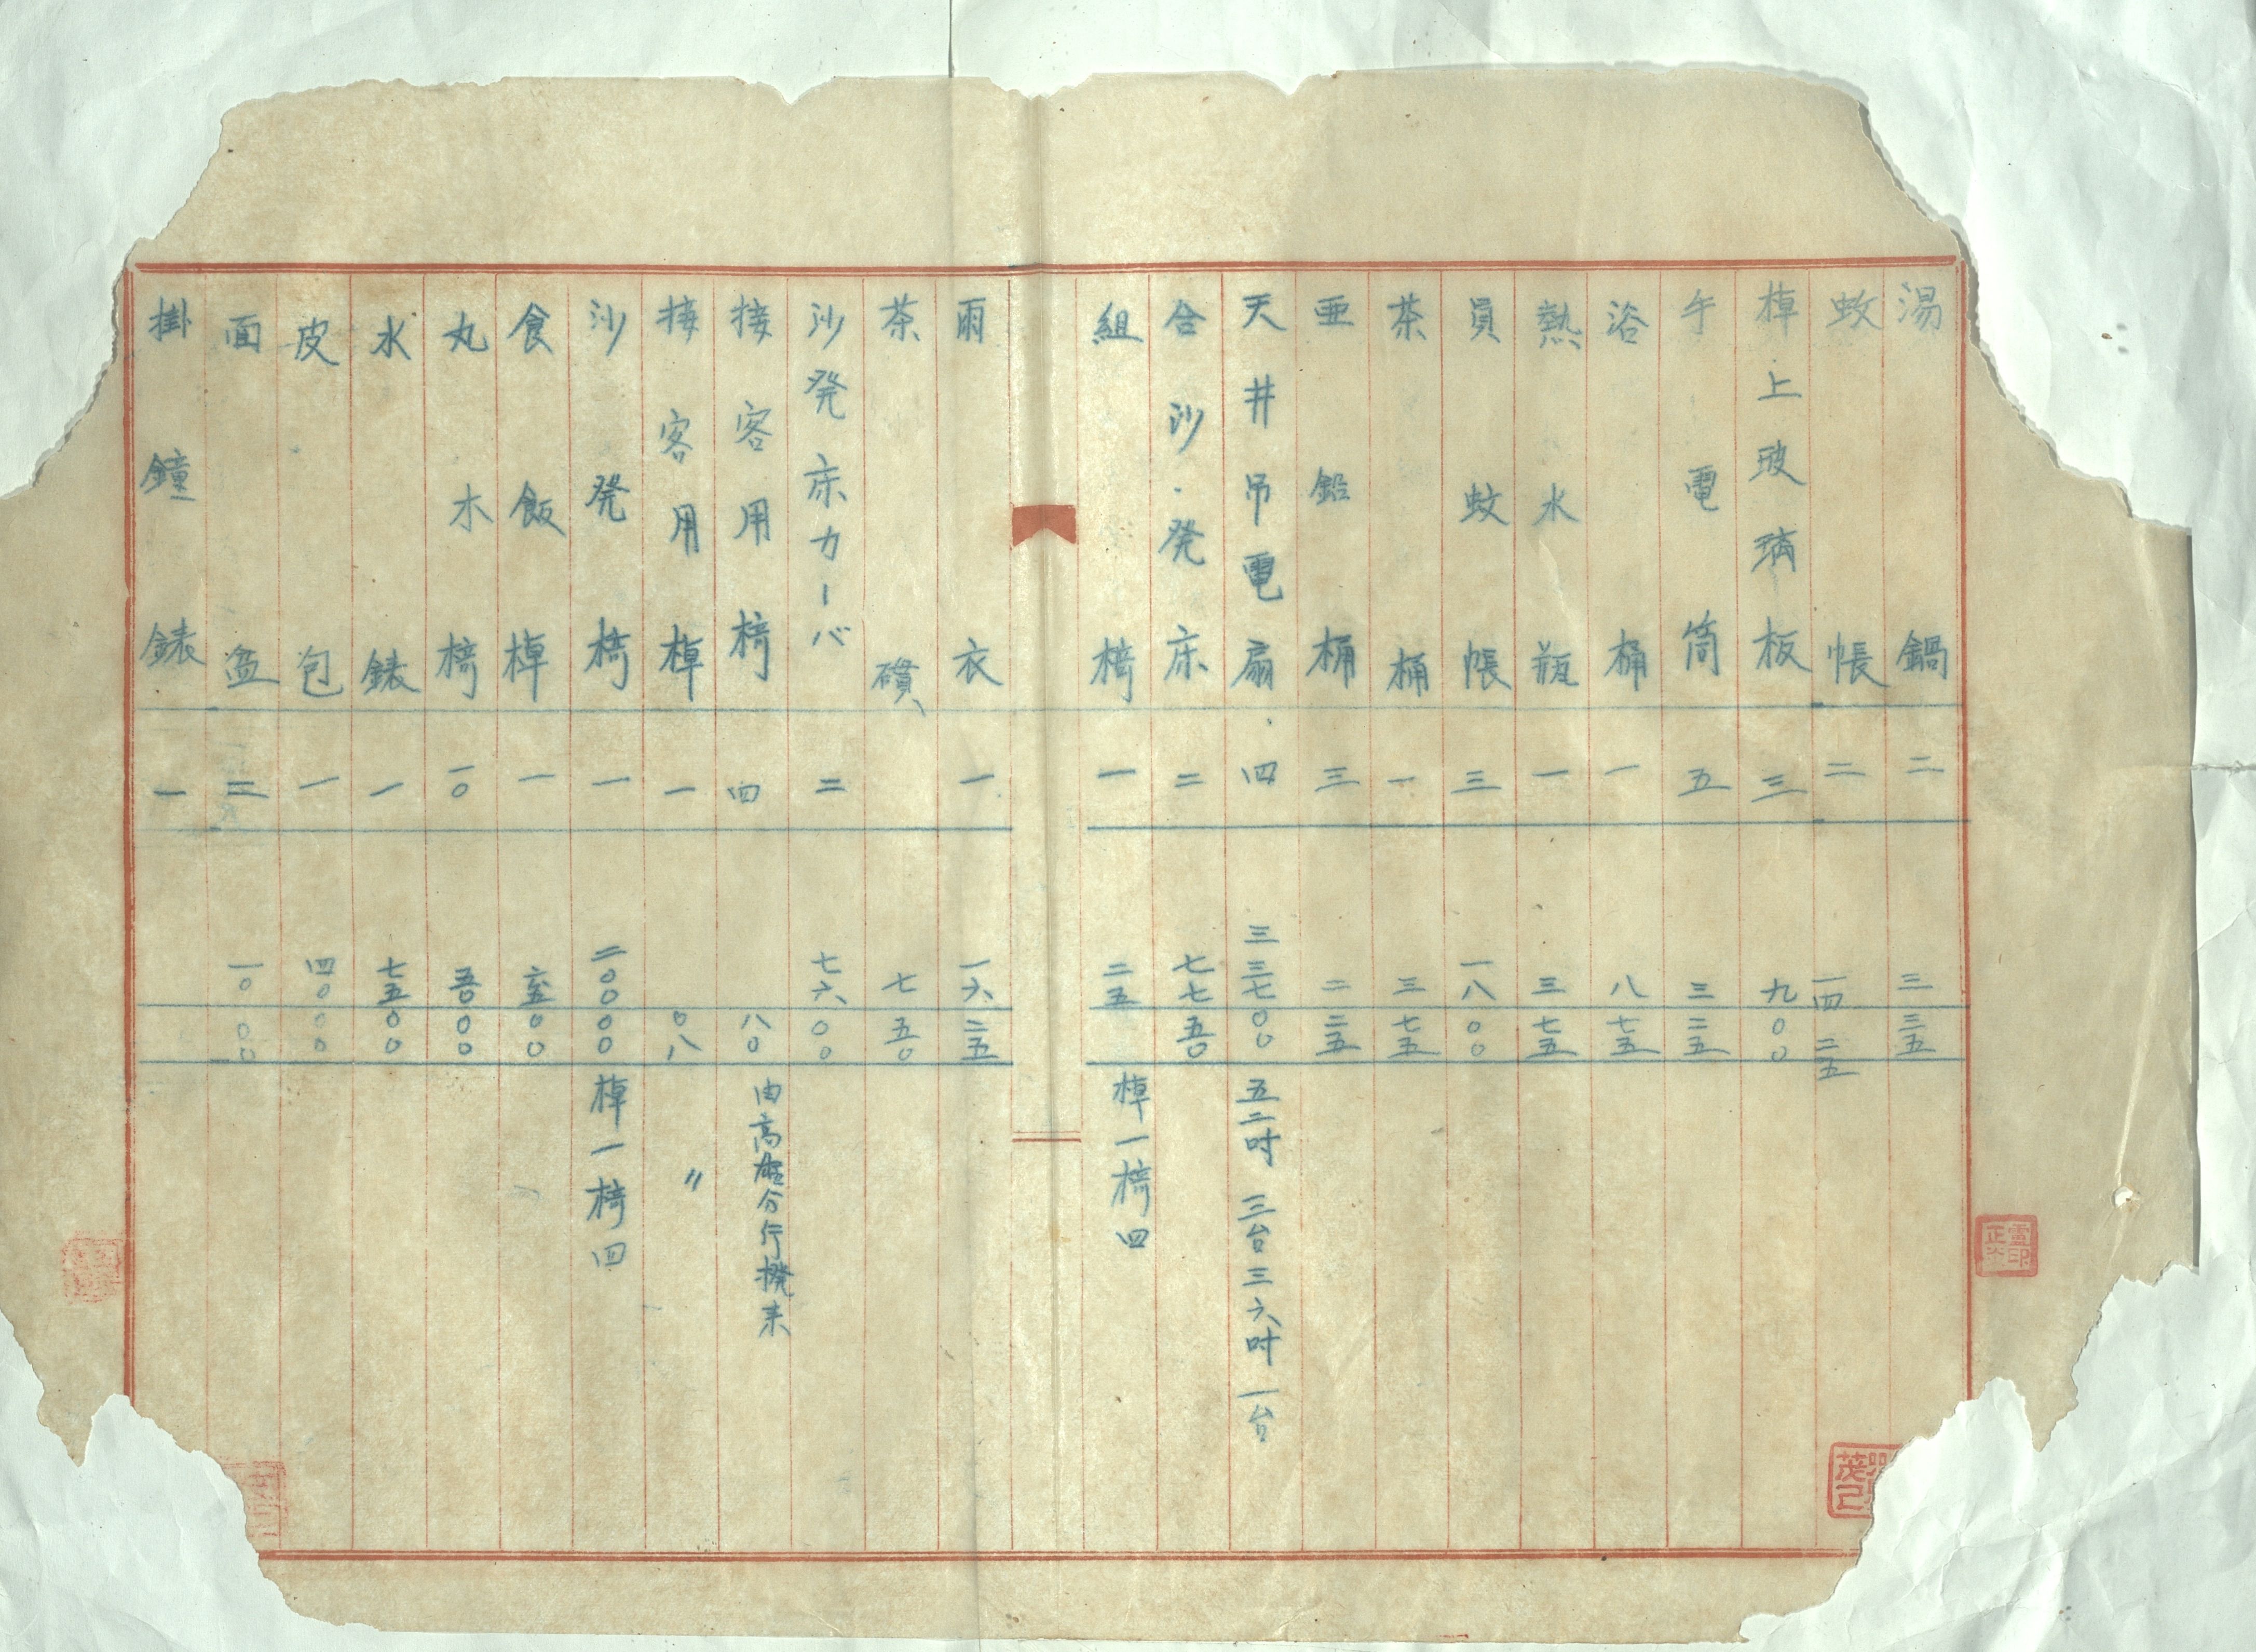 湯鍋 二 三 三五
蚊帳 二 一四 二五
棹上玻璃板 三 九 〇〇
手電筒 五 三 二五
浴桶 一 八 七五
熱水瓶 一 三 七五
員蚊帳 三 一八 〇〇
茶桶 一 三 七五
亜鉛桶 三 二 二五
天井吊電扇 四 三三七 〇〇 五二吋 三台 三六吋 一台
合沙発床 二 七七 五〇
組椅 一 二五 棹一椅四
雨衣 一 一六 二五
茶礸 七 五〇
沙発床カーバ 二 七六 〇〇
接客用椅 四 八〇 由高雄分行撥来
接客用棹 一 〇八 〃
沙発椅 一 二〇〇 〇〇 棹一椅四
食飯棹 一 六五 〇〇
丸木椅 一〇 五〇 〇〇
水錶 一 七五 〇〇
皮包 一 四〇 〇〇
面盆 二 一〇 〇〇
掛鐘錶 一